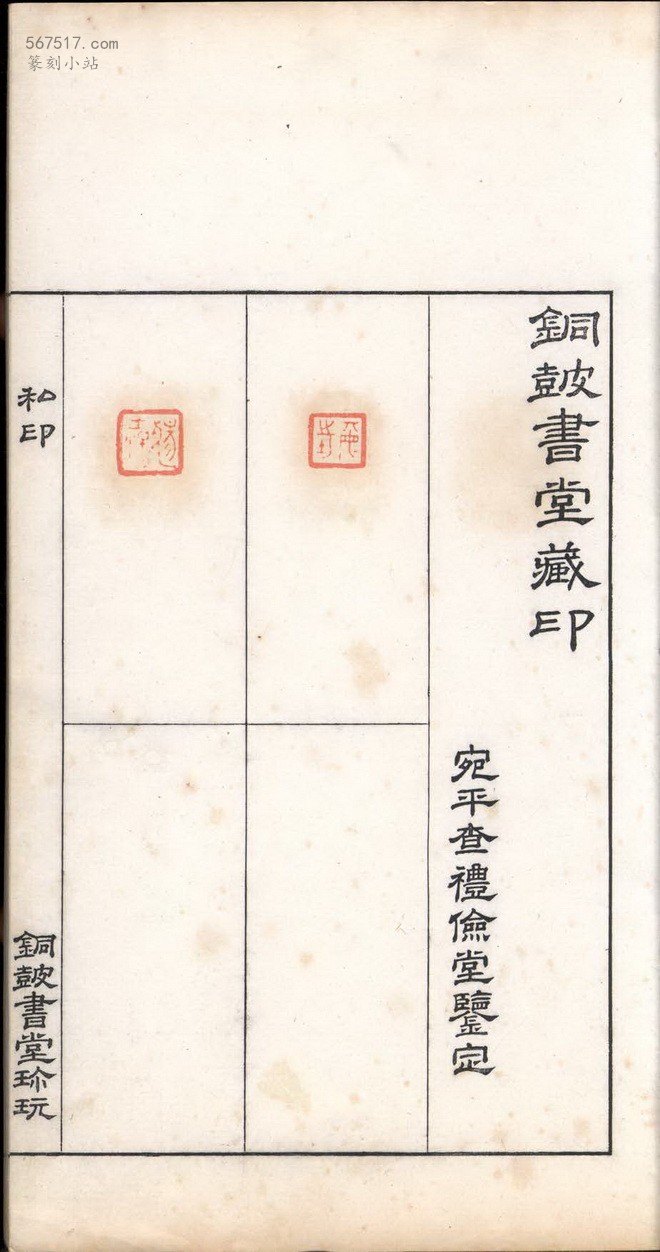 567517.com
篆刻小站
銅鼓書堂藏印
宛平查禮儉堂鑒定
私印
銅鼓書堂珍玩